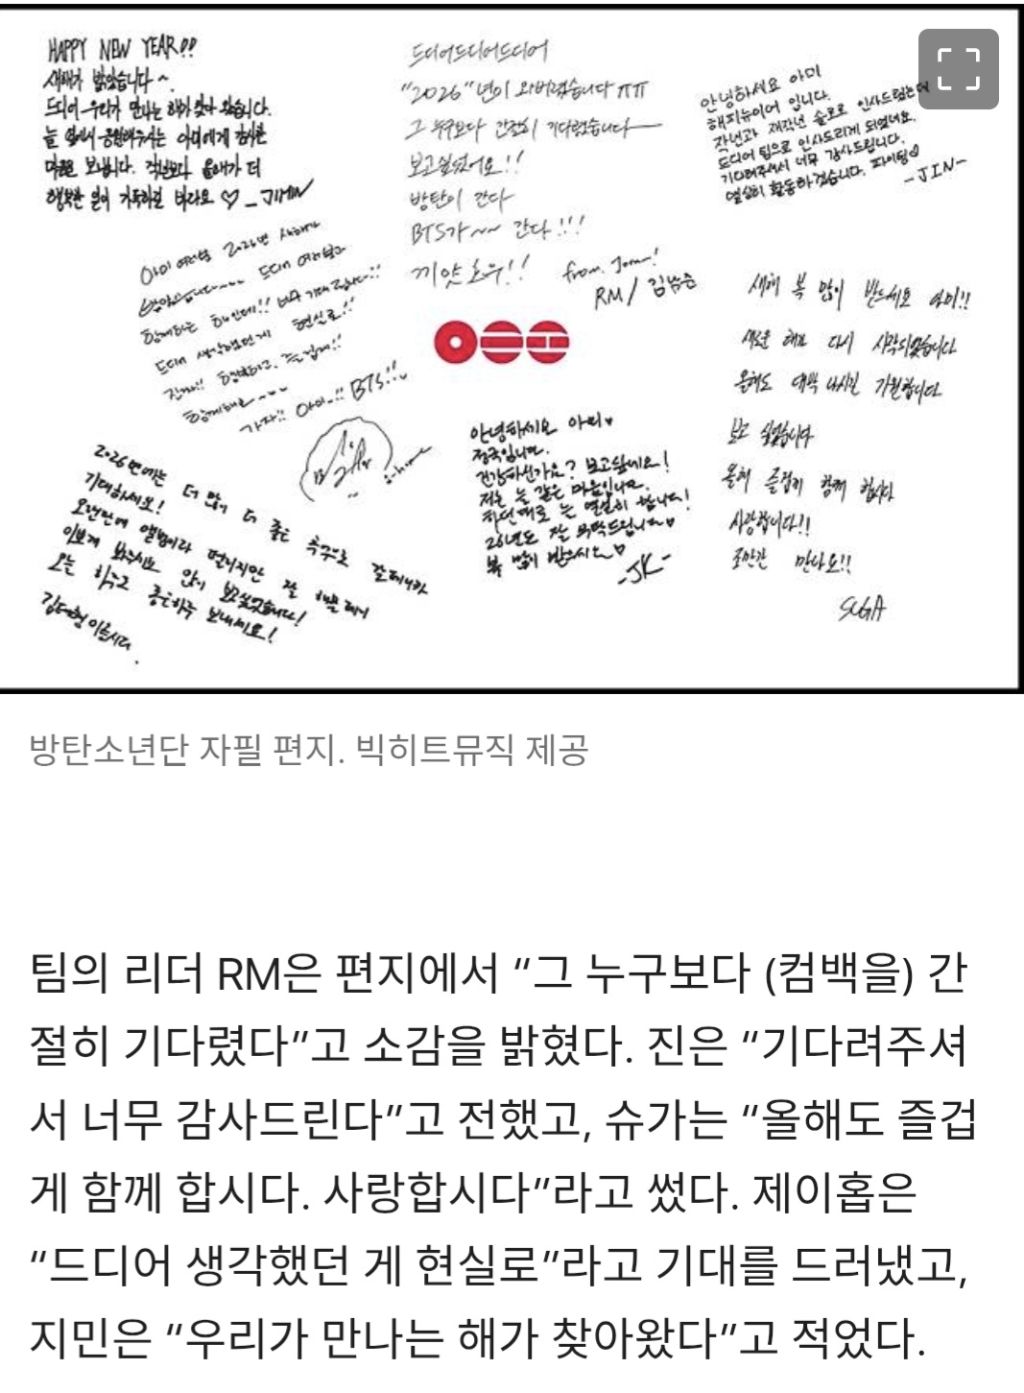 HAPPY NEW YEAR!!
새해가 밝았습니다~
드디어 우리가 만나는 해가 찾아 왔습니다.
늘 옆에서 응원해주시는 아미에게 감사한
마음을 보냅니다. 작년보다 올해가 더
행복한 일이 가득하길 바라요 ♡ - JIMIN
드디어드디어드디어
"2026"년이 와버렸습니다 ㅠㅠ
그 누구보다 간절히 기다렸습니다
보고싶었어요!!
방탄이 간다
BTS가 ~~ 간다!!!
끼얏호우!!
from. Joon!
RM / 김남준
안녕하세요 아미
해피뉴이어 입니다.
작년과 재작년 솔로로 인사드렸는데
드디어 팀으로 인사드리게 되었네요.
기다려주셔서 너무 감사드립니다.
열심히 활동하겠습니다. 파이팅♡
-JIN-
아미 여러분 2026년 새해가
밝았습니다~~~ 드디어 여러분과
함께하는 해인데!! 너무 기대됩니다!!
드디어 생각했던게 현실로!!
진짜!! 행복하고, 즐겁게!!
함께해요~~~
가자!! 아미~!! BTS!!
새해 복 많이 받으세요 아미!!
새로운 해가 다시 시작되었습니다
올해도 대박 나시길 기원합니다
보고 싶었습니다
올해 즐겁게 함께 합시다
사랑합니다!!
조만간 만나요!!
SUGA
안녕하세요 아미♥
정국입니다.
건강하신가요? 보고싶네요!
저는 늘 같은 마음입니다.
하던대로 늘 열심히 합니다!
26년도 잘 부탁드립니다♥
복 많이 받으시요♡
-JK-
2026년에는 더 많이 더 좋은 추억으로 갈테니까
기대하세요!
오랜만에 앨범이라 떨리지만 잘 해볼테니
이쁘게 봐주시요 많이 보고싶었습니다!
오늘 하루도 좋은하루 보내세요!
김태형 이올시다.
방탄소년단 자필 편지. 빅히트뮤직 제공
팀의 리더 RM은 편지에서 “그 누구보다 (컴백을) 간
절히 기다렸다”고 소감을 밝혔다. 진은 “기다려주셔
서 너무 감사드린다”고 전했고, 슈가는 “올해도 즐겁
게 함께 합시다. 사랑합시다”라고 썼다. 제이홉은
“드디어 생각했던 게 현실로”라고 기대를 드러냈고,
지민은 “우리가 만나는 해가 찾아왔다”고 적었다.